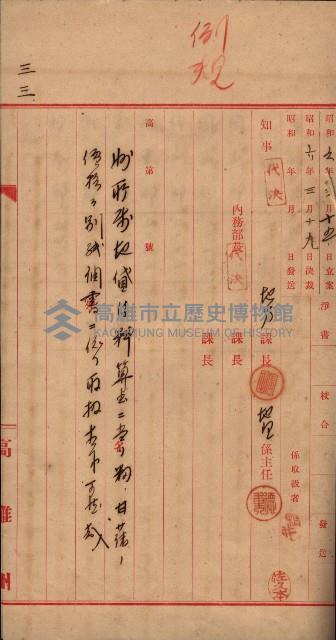 例規
三三
昭和六年三月十五日立案
昭和六年三月十九日決裁
昭和 年 月 日發送
淨書
校合
發送
係取扱者
佐々木
知事
代決
內務部長
代決
地方課長
課長
課長
地理係主任
高 第 號
州所有地貸付料算出二當リ、甘蔗ノ
價格ヲ別紙調書二依リ取扱相成可然哉
高雄州
高雄市立歷史博物館
KAOHSIUNG MUSEUM OF HISTORY